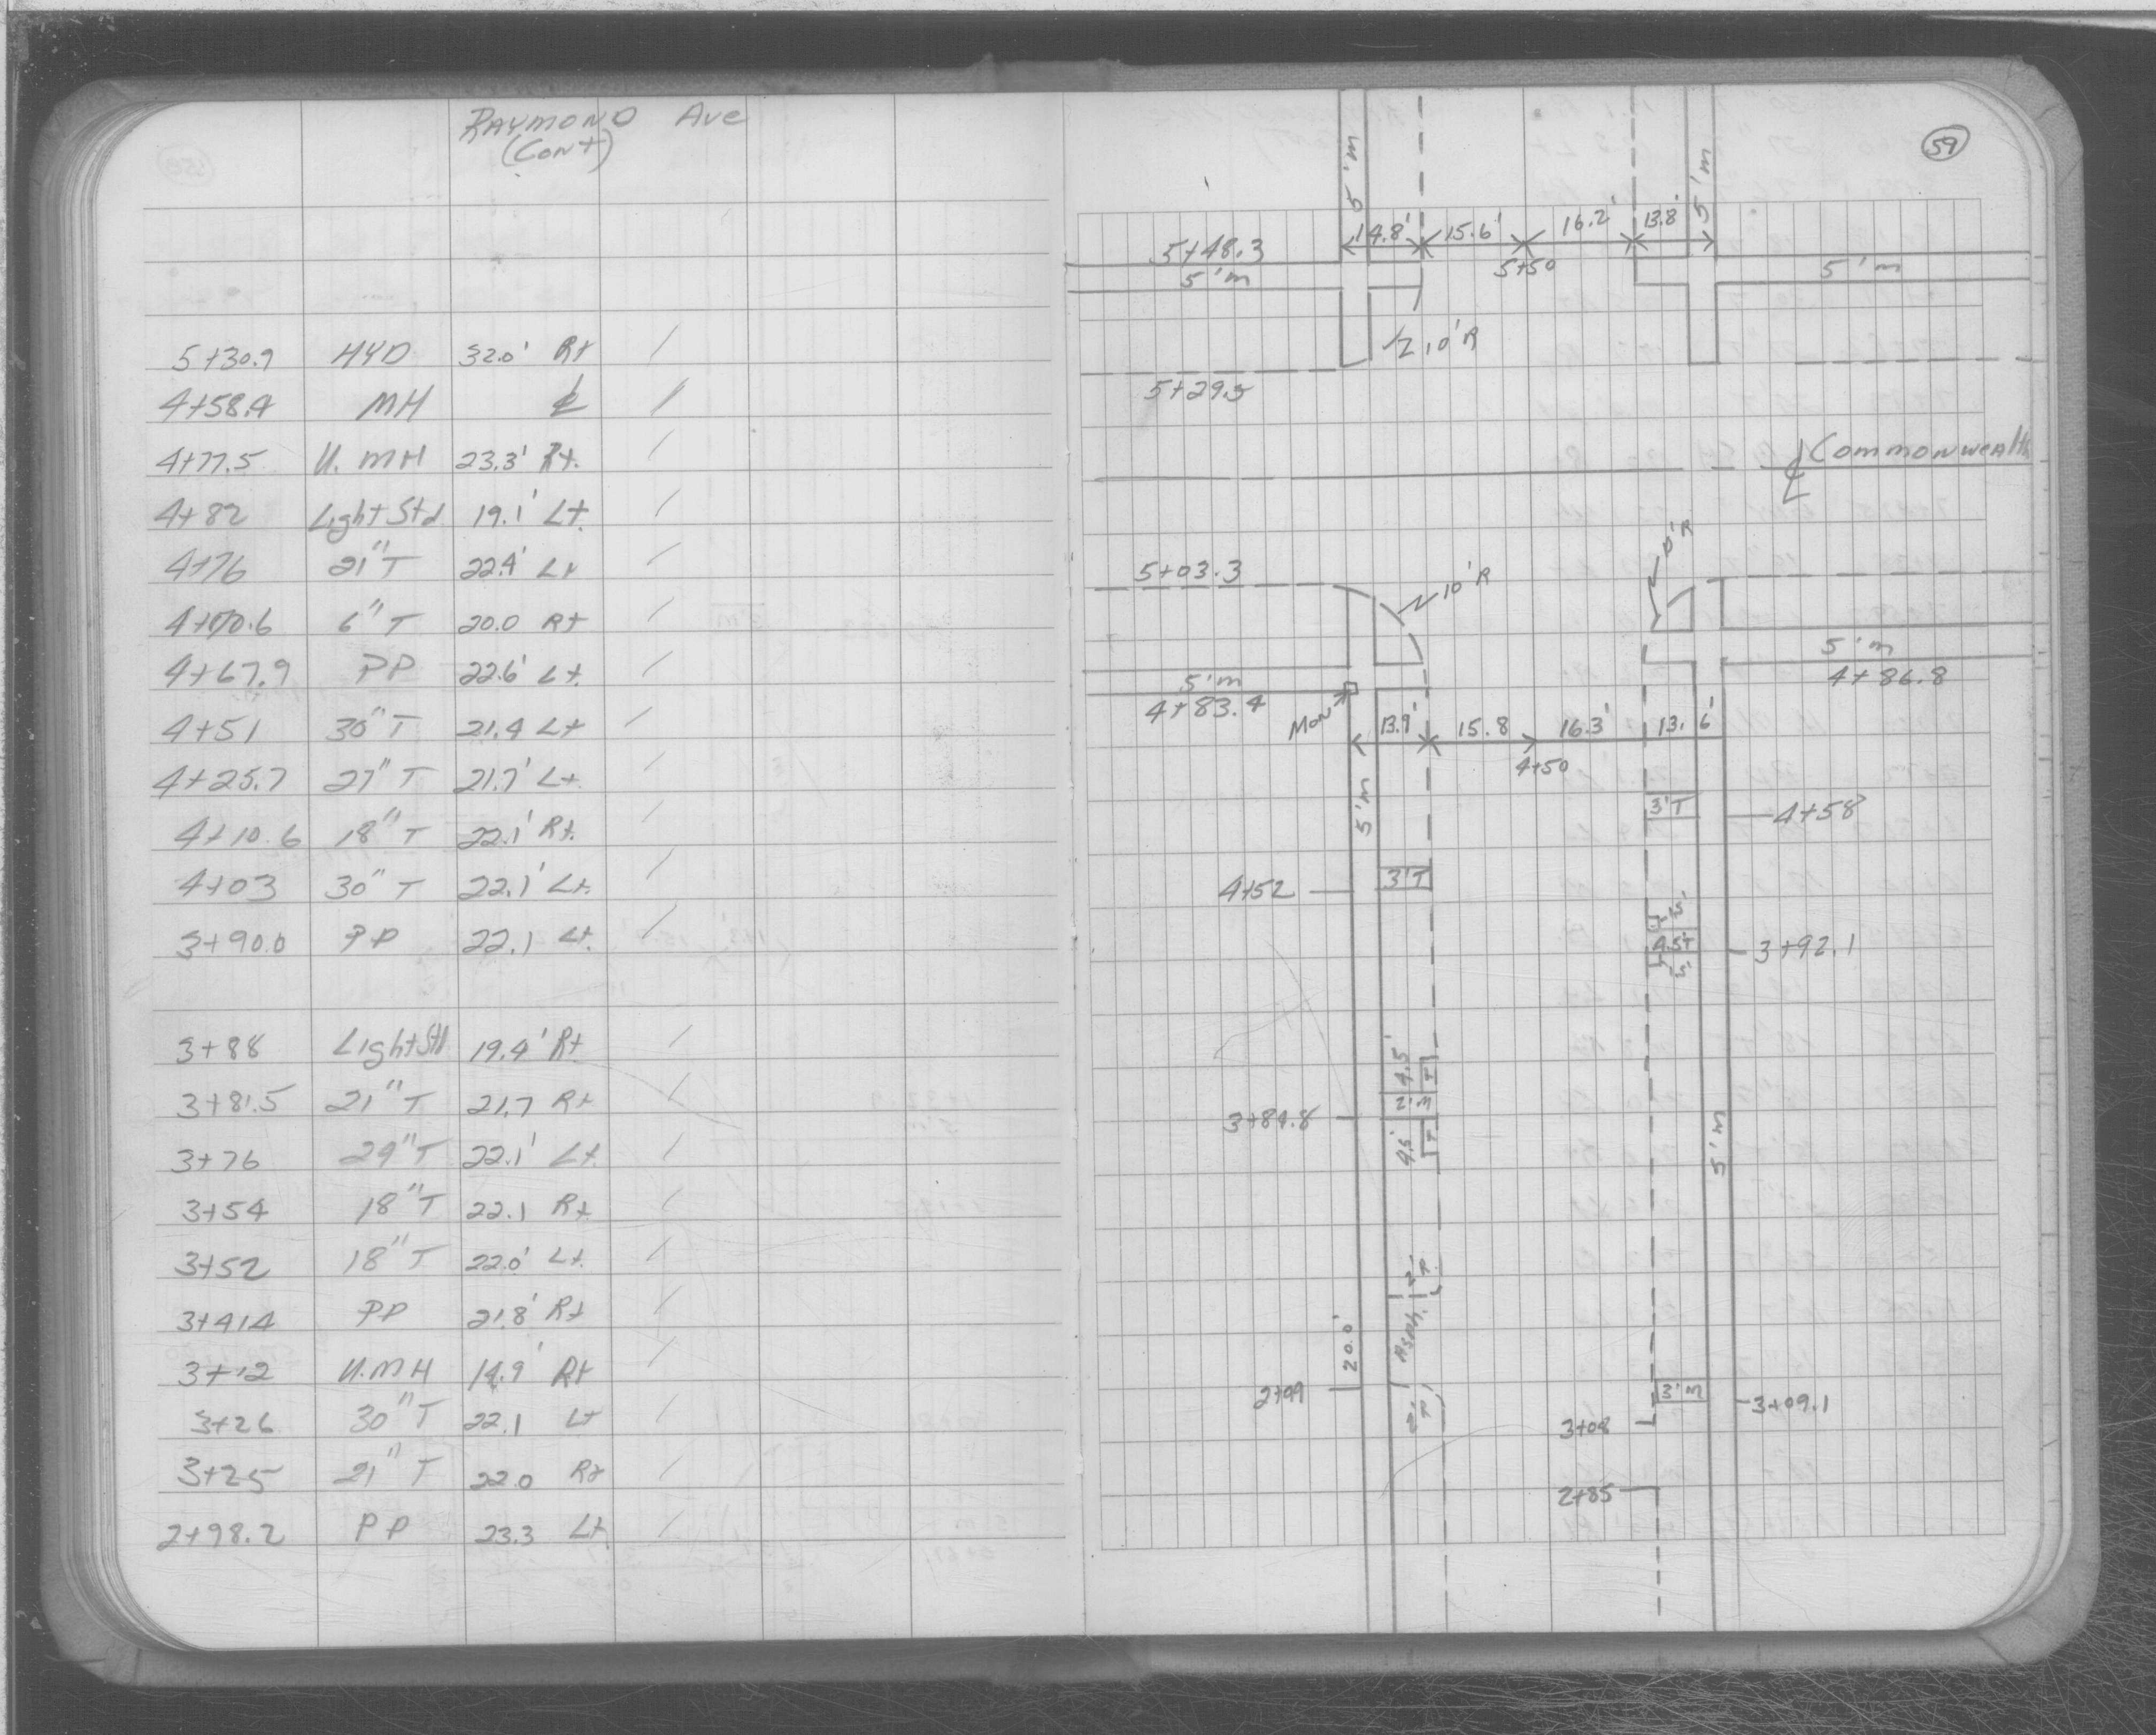 RAYMOND Ave
(Cont)
5+30.9 HYD 32.0' Rt /
4+58.4 MH ℄ /
4+77.5 U. MH 23.3' Rt. /
4+82 Light Std 19.1' Lt. /
4+76 21" T 22.4' Lt /
6" T 20.0 Rt /
4+67.9 PP 22.6' Lt. /
4+51 30" T 21.4 Lt /
4+25.7 27" T 21.7' Lt. /
4+10.6 18" T 22.1' Rt. /
4+03 30" T 22.1' Lt. /
3+90.0 PP 22.1 Lt. /
3+88 Light Std 19.4' Rt /
3+81.5 21" T 21.7 Rt /
3+76 29" T 22.1' Lt. /
3+54 18" T 22.1 Rt /
3+52 18" T 22.0' Lt. /
3+41.4 PP 21.8' Rt /
3+12 U.MH 14.9' Rt /
3+26 30" T 22.1 Lt /
3+25 21" T 22.0 Rt /
2+98.2 PP 23.3 Lt /
59
5'm 5'm
14.8' 15.6' 16.2' 13.8'
5+48.3 5+50
5'm 5'm
10'R
5+29.5
℄ Commonwealth
5+03.3 10'R 10'R
5'm 5'm
4+83.4 4+86.8
Mon 13.9' 15.8 16.3' 13.6'
4+50
5'm 3'T 4+58
4+52 3'T
4.5'T 3+92.1
4.5' T
3+84.8 2'm
4.5' T 5'm
Asph.
20.0'
2+99 3'm 3+09.1
3+08
2+85